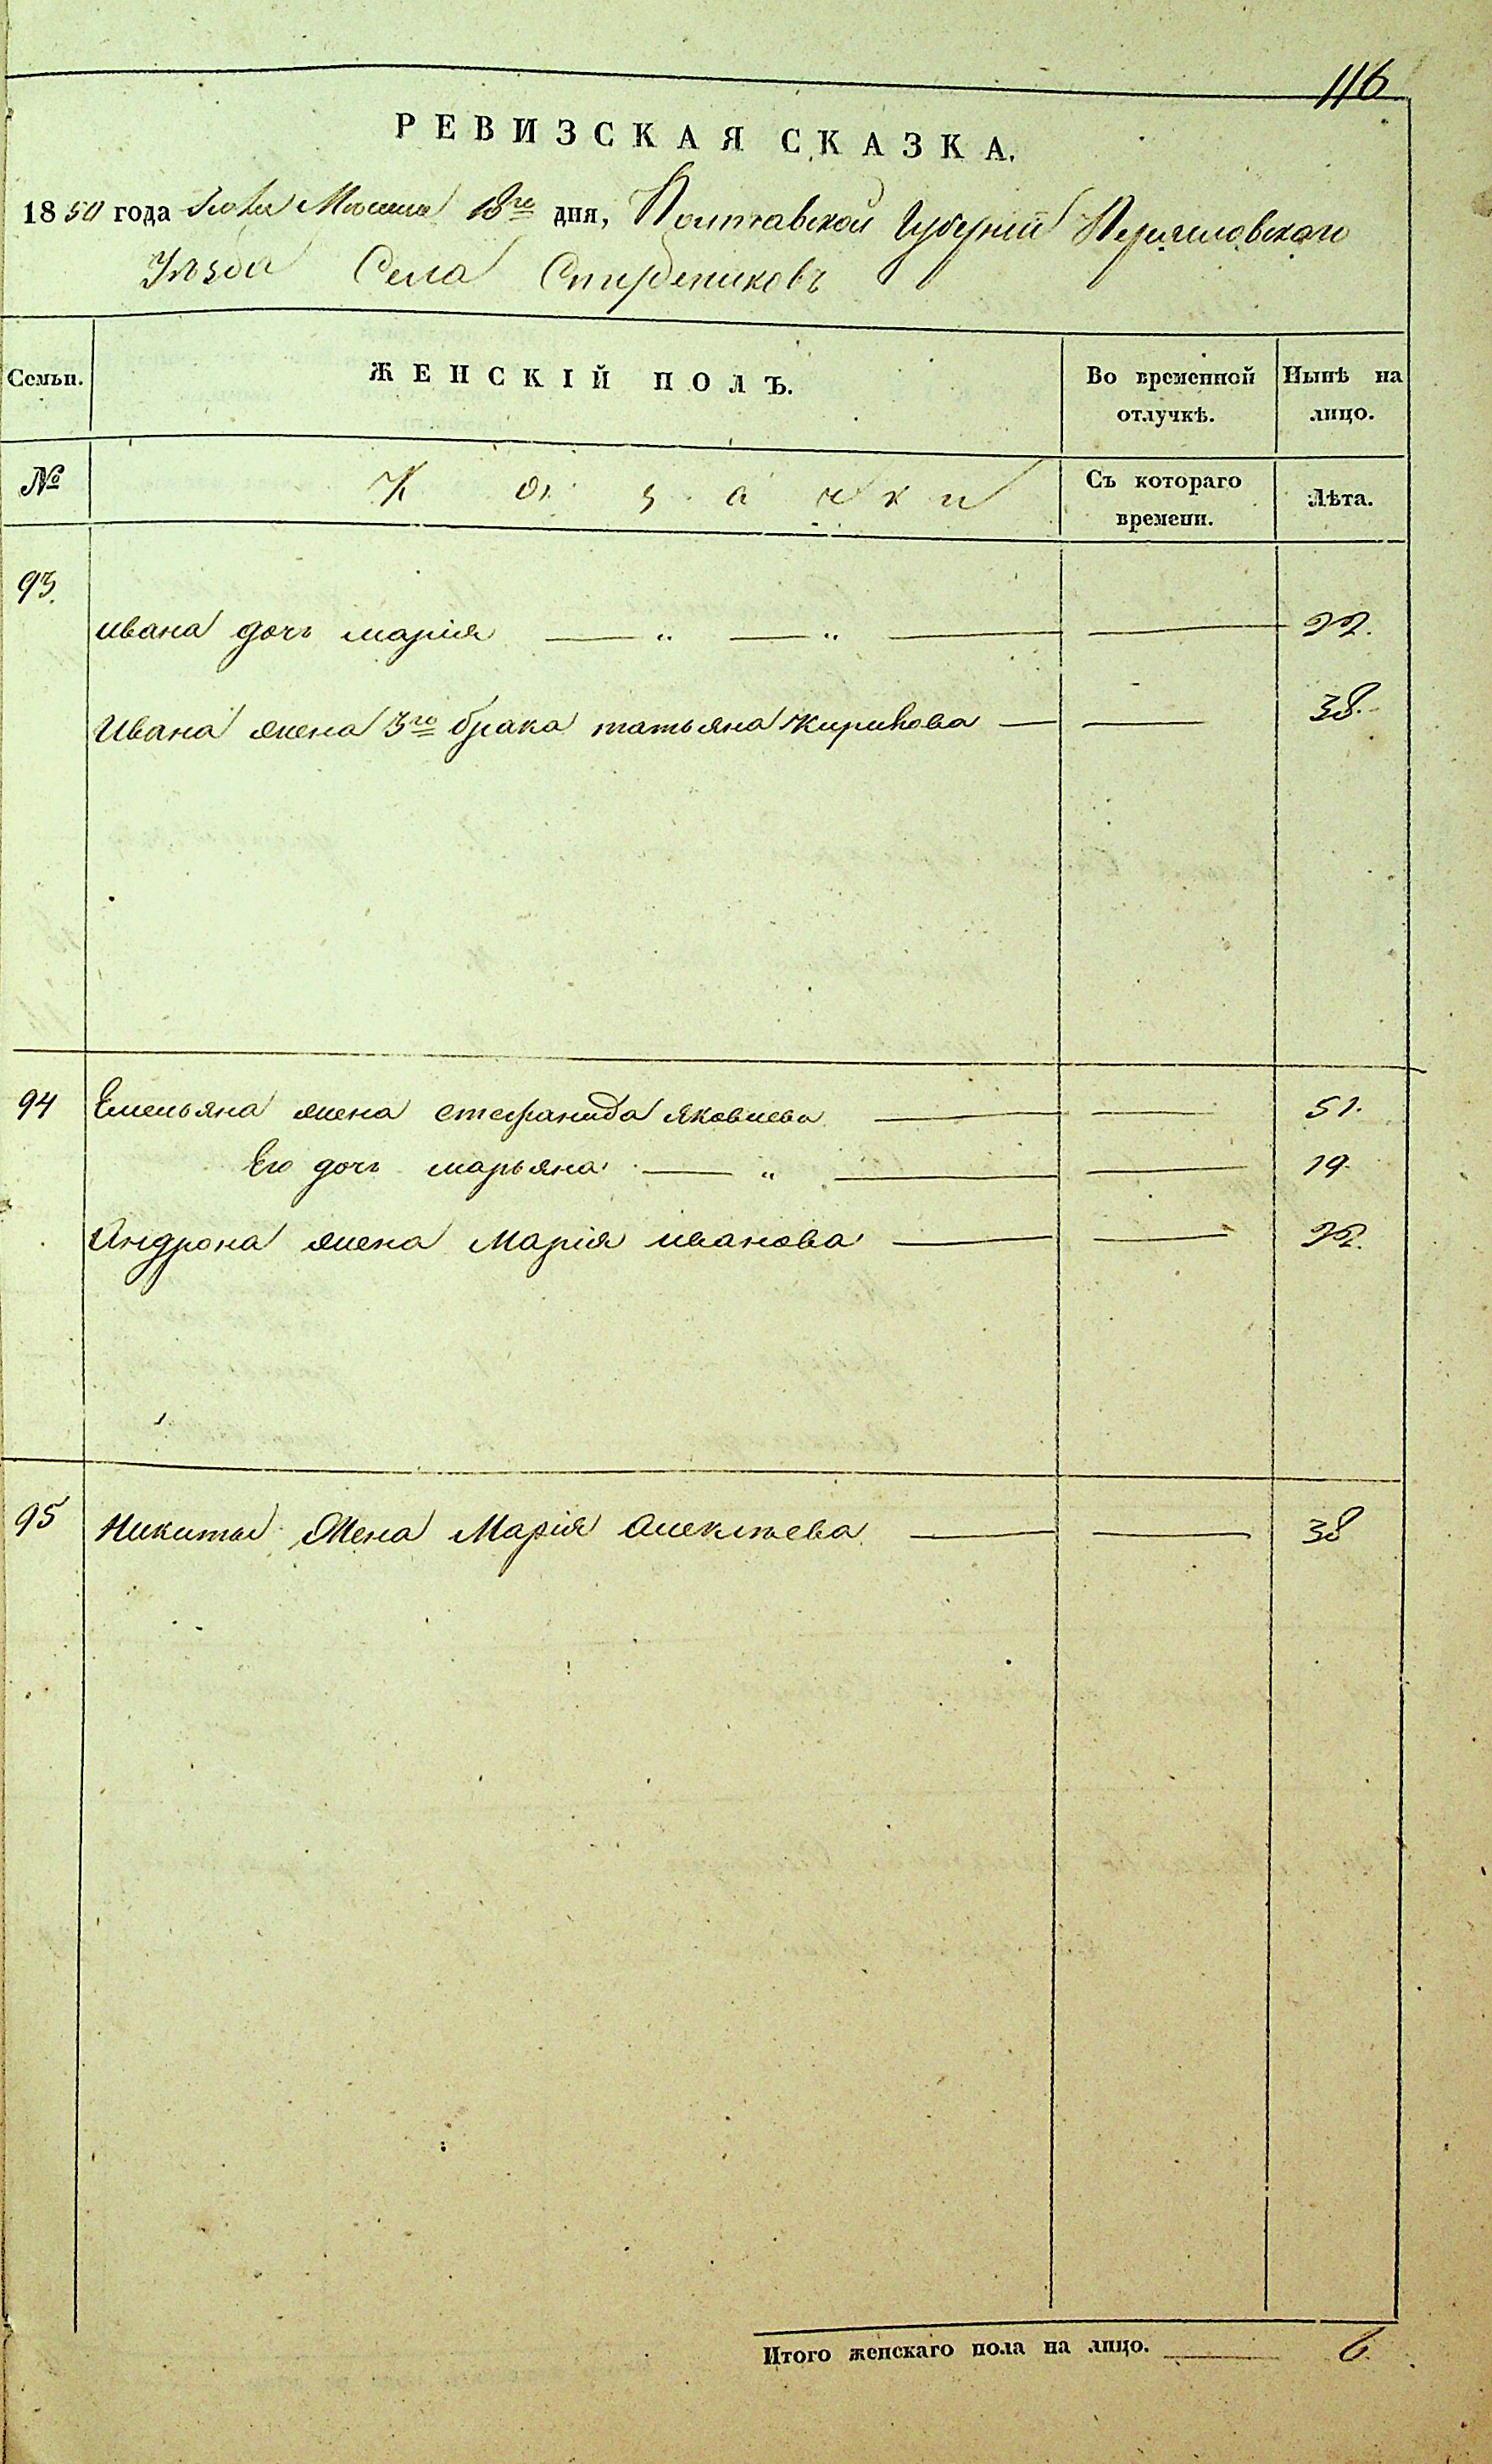 116
РЕВИЗСКАЯ СКАЗКА.
1850 года Мѣсяца 18го дня, Полтавской Губерніи Переяловскаго
Уѣзда Села
Семьи. ЖЕНСКІЙ ПОЛЪ. Во временной отлучкѣ. Нынѣ на лицо.
№ Козачки Съ котораго времени. Лѣта.
93.
Ивана дочь марія — „ — „ — — 22.
Ивана жена 3го брака татьяна Кирикова — — 38.
94 Емельяна жена стефанида Яковлева — — 51.
Его дочь марьяна — „ — — 19.
Андрона жена Марія иванова — — 22.
95 Никиты Жена Марія Алексѣева — — 38
Итого женскаго пола на лицо. — 6.